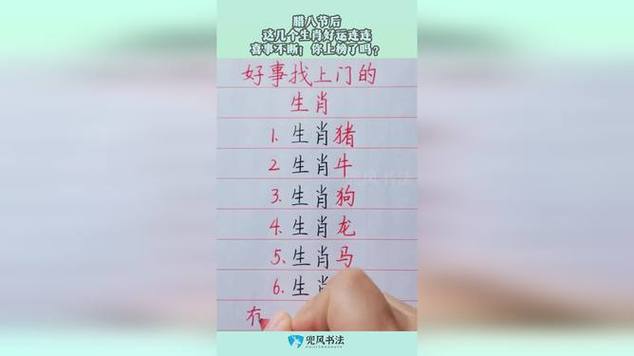 腊八节后
这几个生肖好运连连
喜事不断！你上榜了吗？
好事找上门的
生肖
1. 生肖猪
2 生肖牛
3. 生肖狗
4. 生肖龙
5. 生肖马
6. 生肖
兜风书法